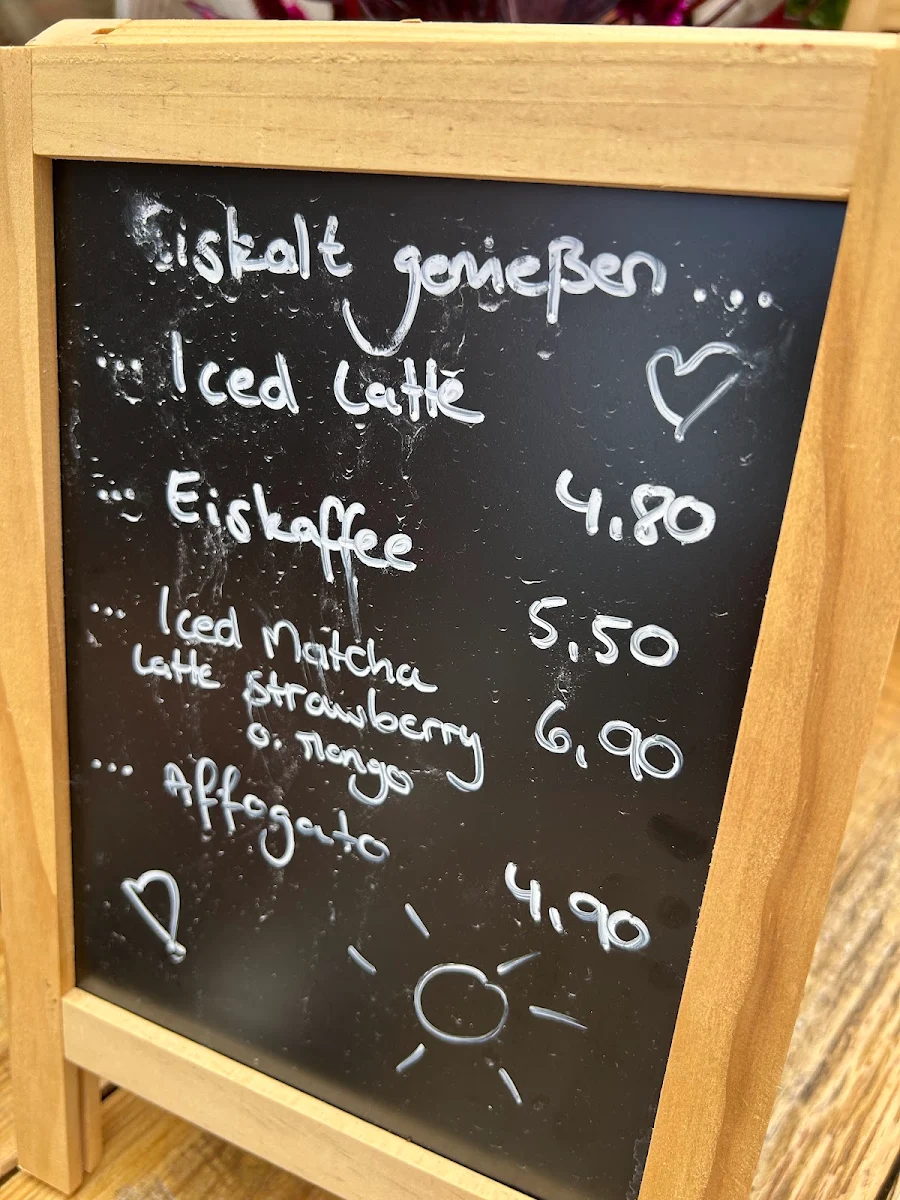 Eiskalt genießen ....
... Iced Latte
... Eiskaffee 4,80
... Iced Matcha 5,50
Latte strawberry 6,90
o. Mango
... Affogato
4,90